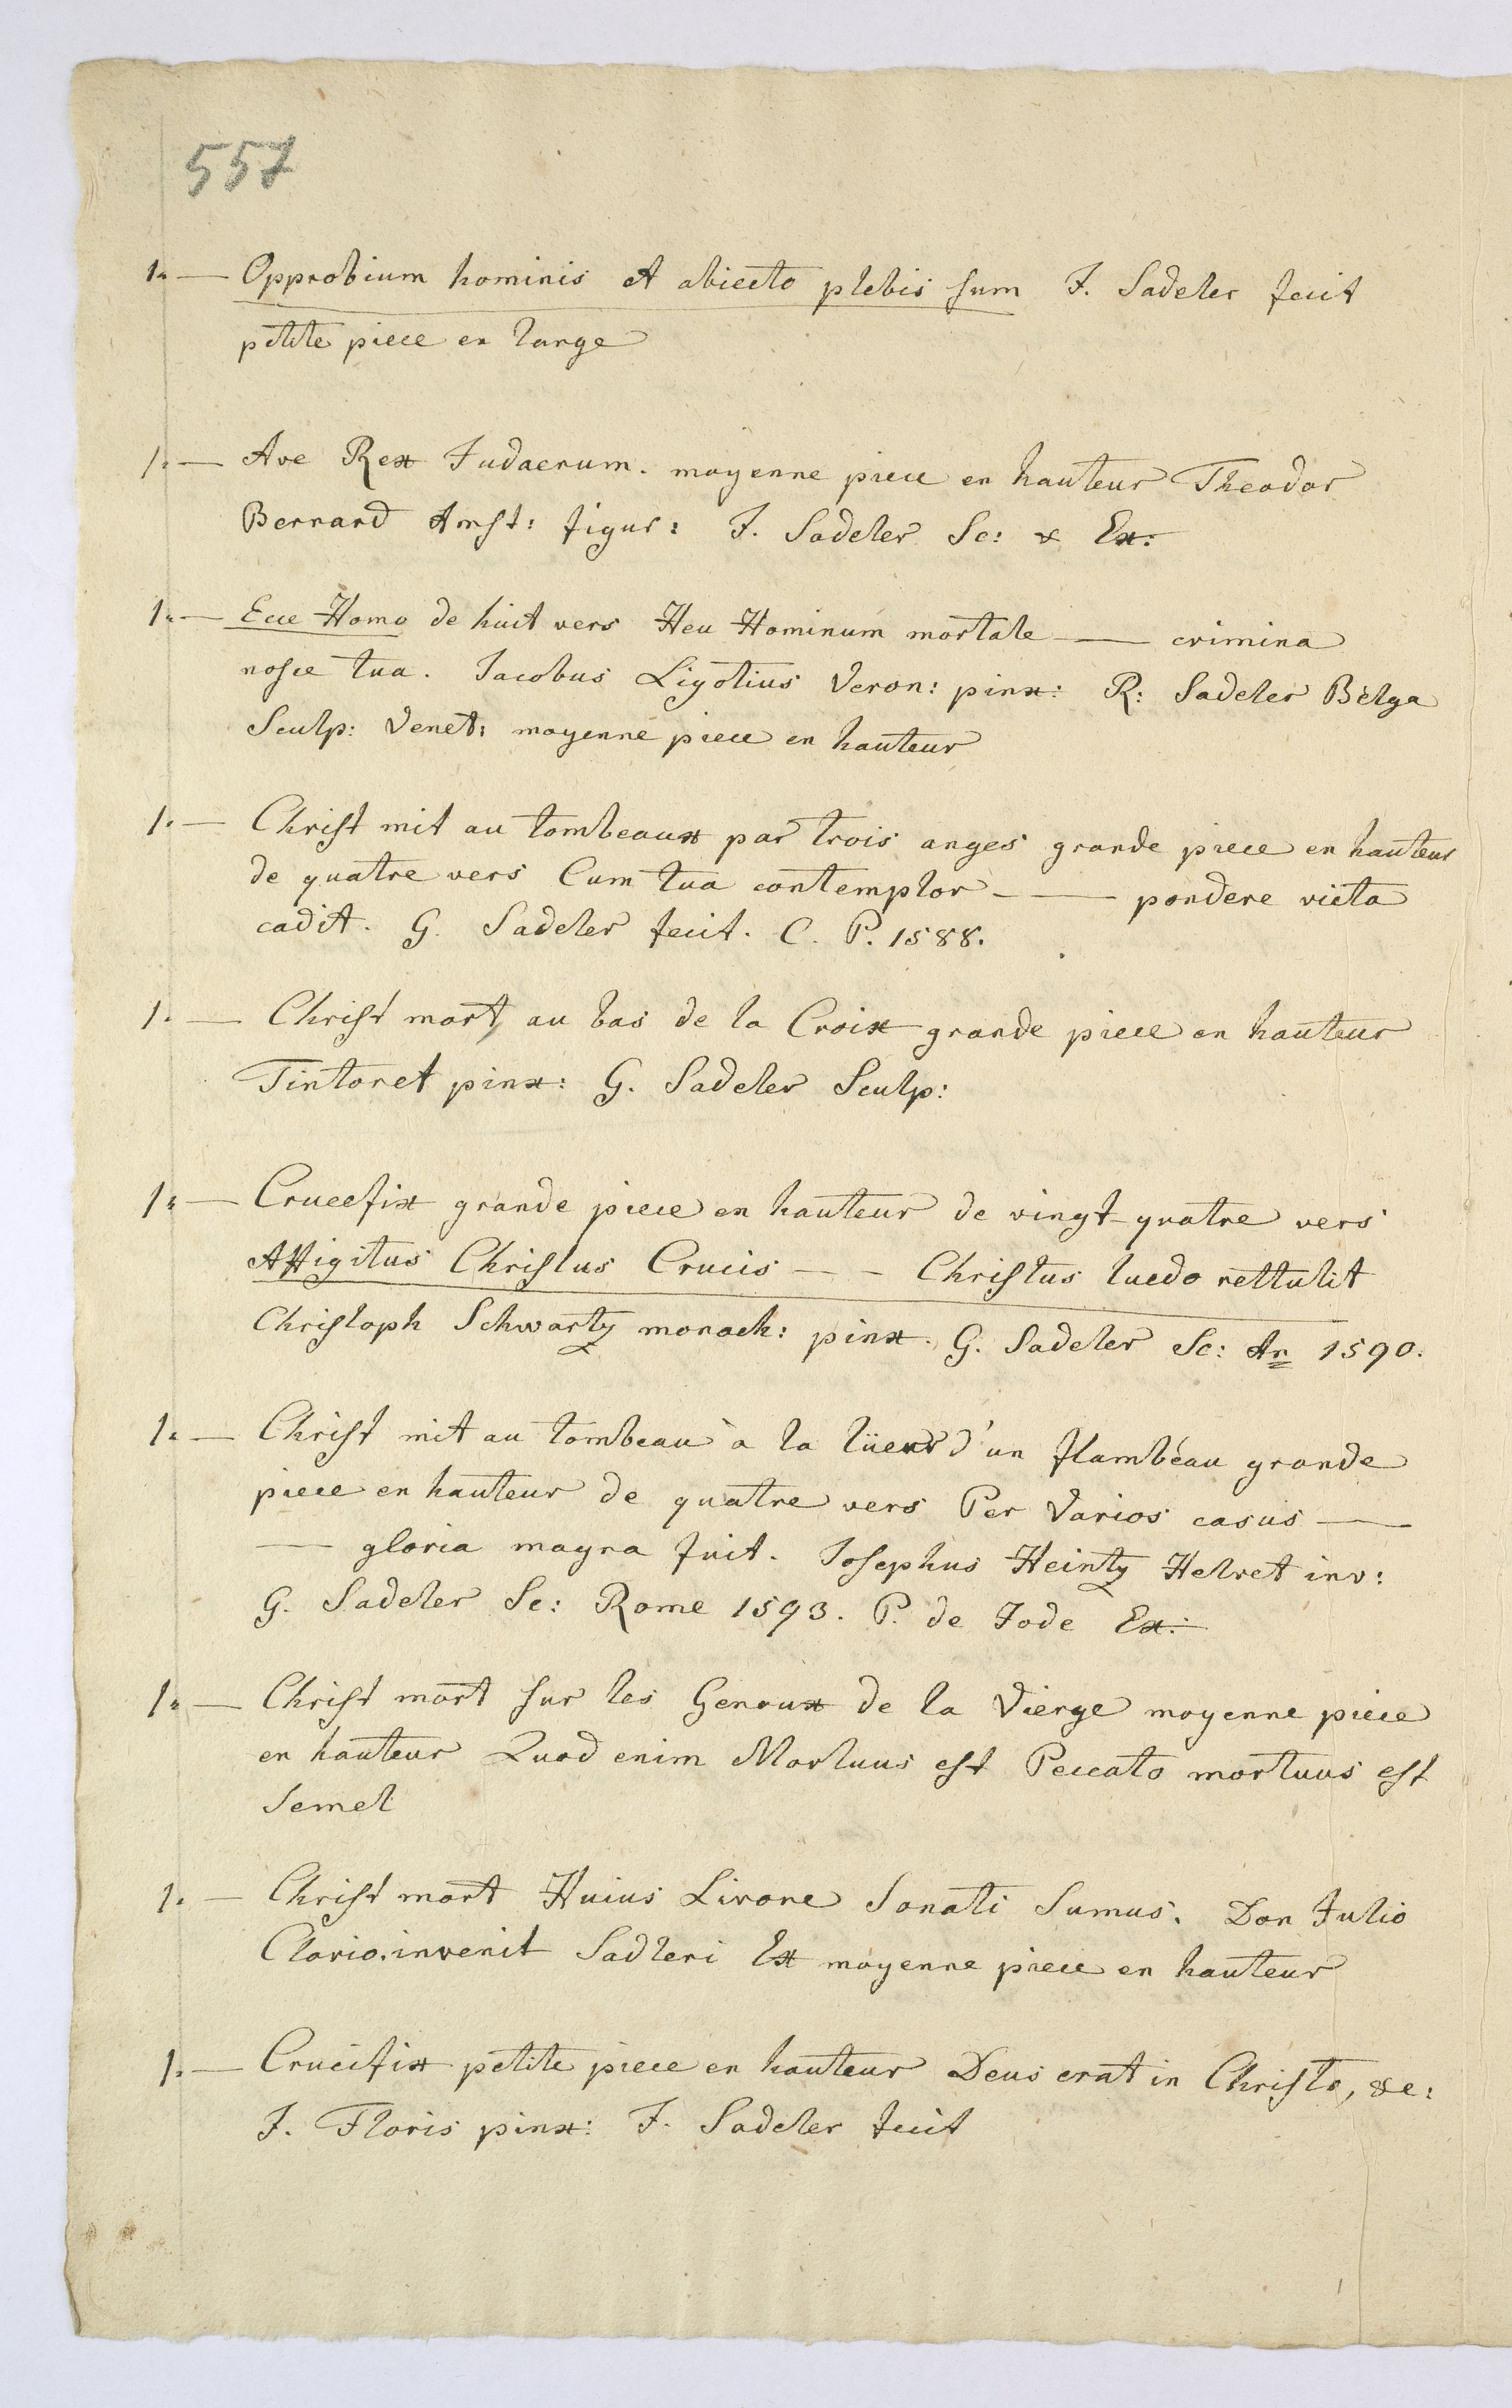 557
1. — Opprobium hominis et abiecto plebis sum J. Sadeler fecit
petite piece en large
1. — Ave Rex Judaerum. moyenne piece en hauteur Theodor
Bernard Amst: figur: J. Sadeler Sc: & Ex:
1. — Ecce Homo de huit vers Heu Hominum mortale — crimina
nosce tua. Jacobus Ligotius Veron: pinx: R: Sadeler Belga
Sculp: Venet: moyenne piece en hauteur
1. — Christ mit au tombeaux par trois anges grande piece en hauteur
de quatre vers Cum tua contemplor — pondere victa
cadit. G. Sadeler fecit. C. P. 1588.
1. — Christ mort, au bas de la Croix grande piece en hauteur
Tintoret pinx: G. Sadeler Sculp:
1. — Crucefix grande piece en hauteur de vingt-quatre vers
Affigitus Christus Crucis — – Christus luedo rettulit
Christoph Schwartz monach: pinx. G. Sadeler Sc: An 1590.
1. — Christ mit au tombeau à la lüeur d'un flambéau grande
piece en hauteur de quatre vers Per Varios casus —
— gloria magna fuit. Josephus Heintz Helvet inv:
G. Sadeler Sc: Rome 1593. P. de Jode Ex:
1. — Christ mort sur les Genoux de la Vierge moyenne piece
en hauteur Quod enim Mortuus est Peccato mortuus est
Semel
1. — Christ mort Huius Livore Sanati Sumus. Don Julio
Clario. invenit Sadleri Ex moyenne piece en hauteur
1. — Crucifix petite piece en hauteur Deus erat in Christo, &c:
J. Floris pinx: J. Sadeler fecit